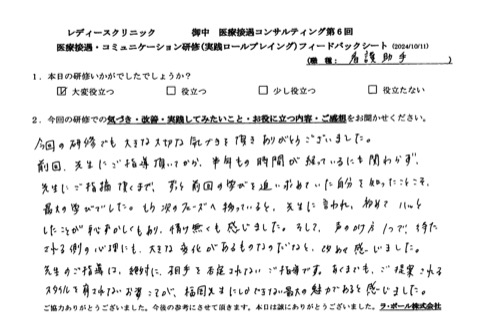 レディースクリニック 御中 医療接遇コンサルティング第6回
医療接遇・コミュニケーション研修(実践ロールプレイング)フィードバックシート (2024/10/11)
(職 種: 看護助手 )
1.本日の研修いかがでしたでしょうか?
☑ 大変役立つ □ 役立つ □ 少し役立つ □ 役立たない
2.今回の研修での気づき・改善・実践してみたいこと・お役に立つ内容・ご感想をお聞かせください。
今回の研修でも大きな大切な気づきを頂きありがとうございました。
前回、先生にご指導頂いてから、半年もの時間が経っているにも関わらず、
先生にご指摘頂くまで、ずっと前回の学びを追い求めていた自分を知ったことこそ、
最大の学びでした。もう次のフェーズへ移っていると、先生に言われ、改めてハッと
したことが恥ずかしくもあり、情け無くも感じました。そして、声のかけ方1つで、待た
される側の心理にも、大きな変化があるものなのだなと、改めて感じました。
先生のご指導は、絶対に、相手を否定されないご指導です。あくまでも、ご提案される
スタイルを崩されないお姿こそが、福岡先生にしかできない最大の魅力であると感じます。
ご協力ありがとうございました。今後の参考にさせて頂きます。本日は誠にありがとうございました。ラ・ポール株式会社